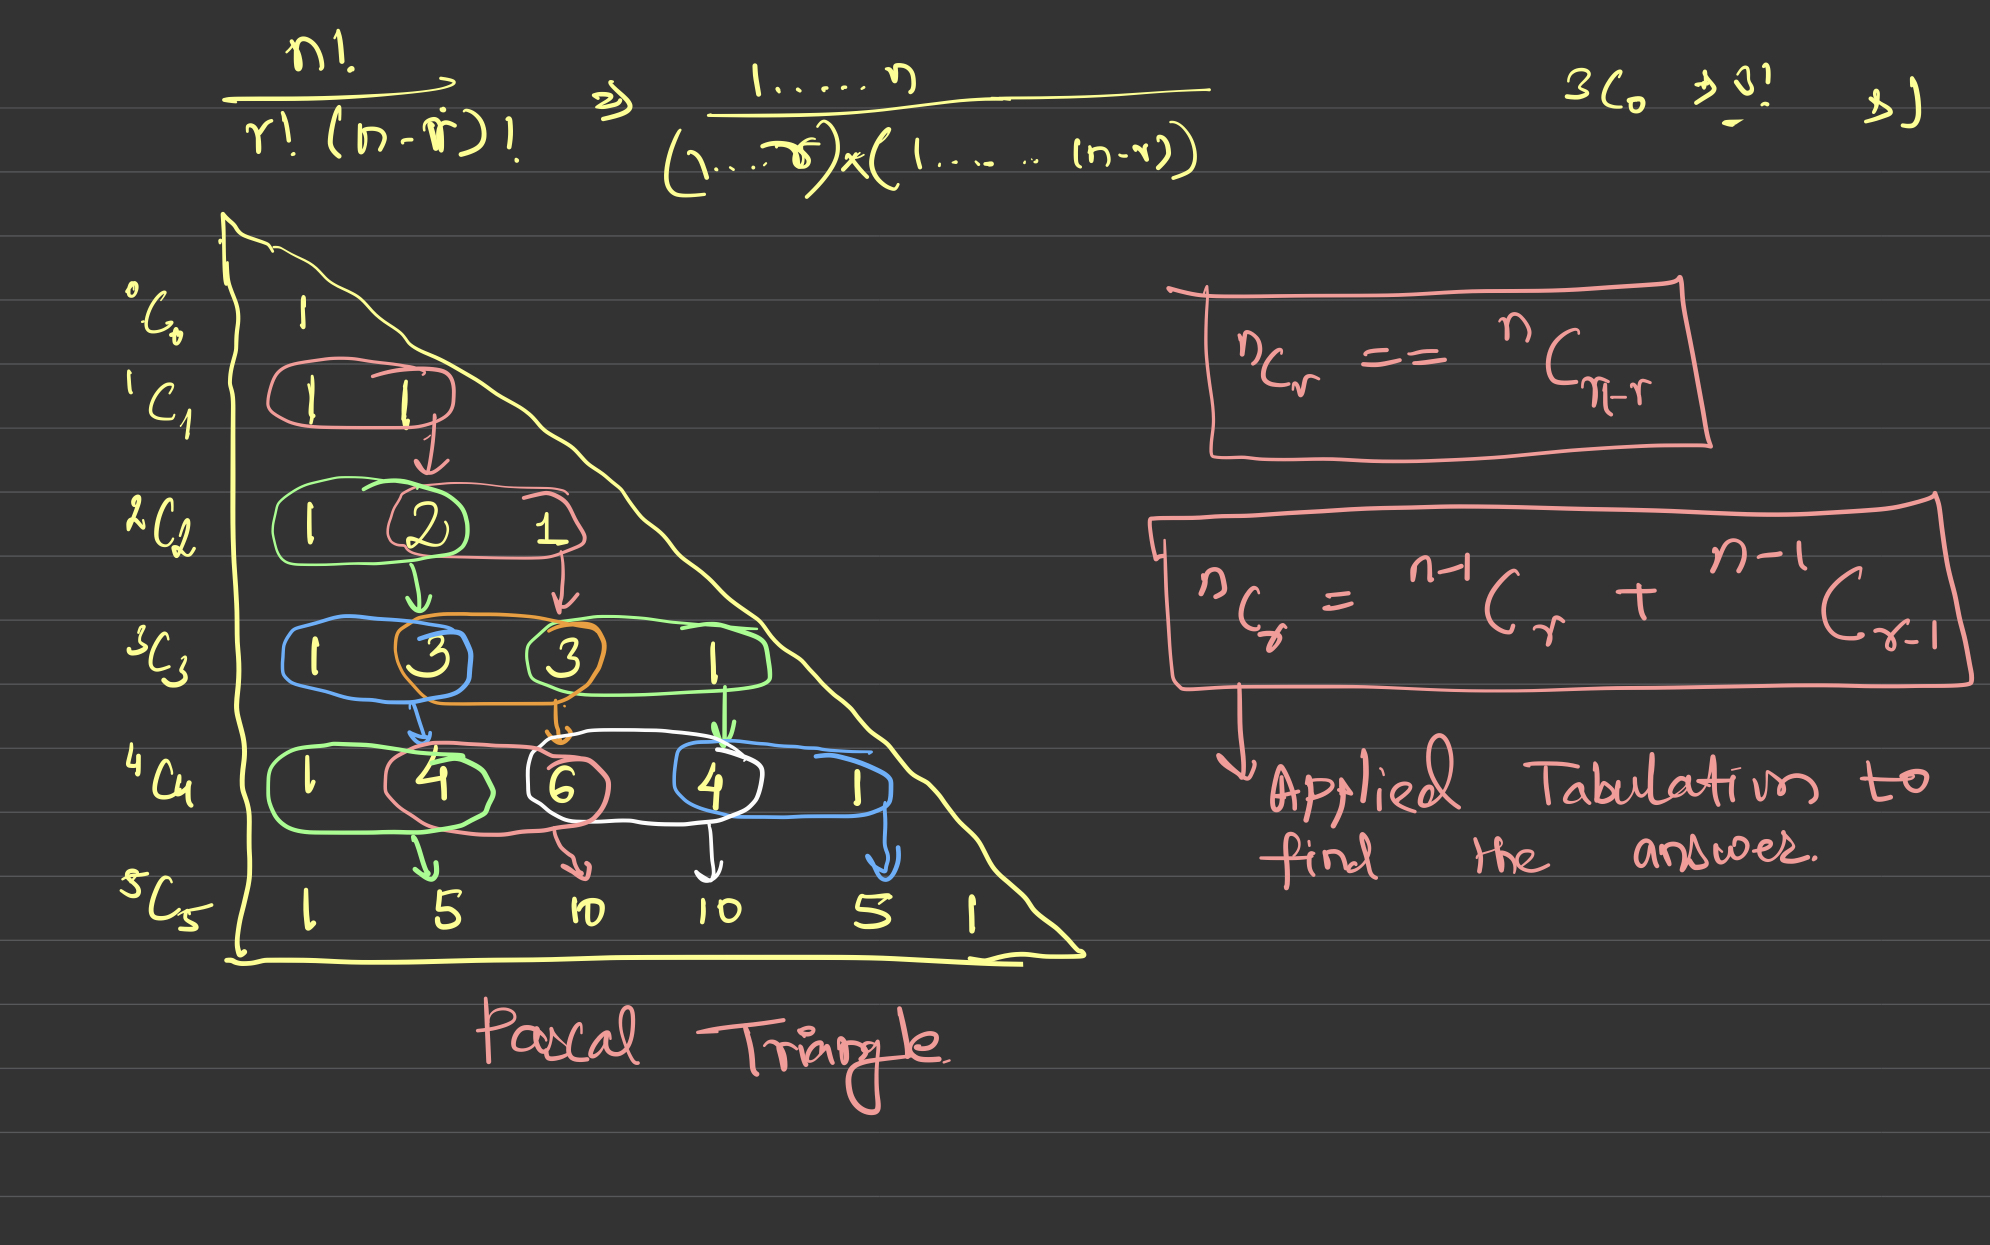 n! / r! (n-r)! ⇒ 1......n / (1....r)×(1...... (n-r))
3C₀ → 3! →
⁰C₀ 1
¹C₁ 1 1
²C₂ 1 2 1
³C₃ 1 3 3 1
⁴C₄ 1 4 6 4 1
⁵C₅ 1 5 10 10 5 1
Pascal Triangle.
ⁿCᵣ == ⁿCₙ₋ᵣ
ⁿCᵣ = ⁿ⁻¹Cᵣ + ⁿ⁻¹Cᵣ₋₁
Applied Tabulation to
find the answer.